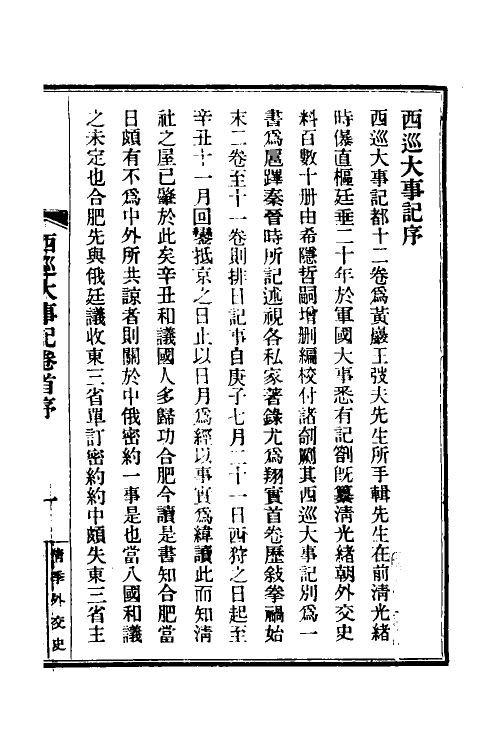 西巡大事記序
西巡大事記都十二卷爲黃巖王弢夫先生所手輯先生在前淸光緒
時儤直樞廷垂二十年於軍國大事悉有記劄旣纂淸光緒朝外交史
料百數十册由希隱哲嗣增删編校付諸剞劂其西巡大事記別爲一
書爲扈蹕秦晉時所記述視各私家著錄尤爲翔實首卷歷敍拳禍始
末二卷至十一卷則排日記事自庚子七月二十一日西狩之日起至
辛丑十一月回鑾抵京之日止以日月爲經以事實爲緯讀此而知淸
社之屋已肇於此矣辛丑和議國人多歸功合肥今讀是書知合肥當
日頗有不爲中外所共諒者則關於中俄密約一事是也當八國和議
之未定也合肥先與俄廷議收東三省單訂密約約中頗失東三省主
西巡大事記卷首序
一
淸季外交史